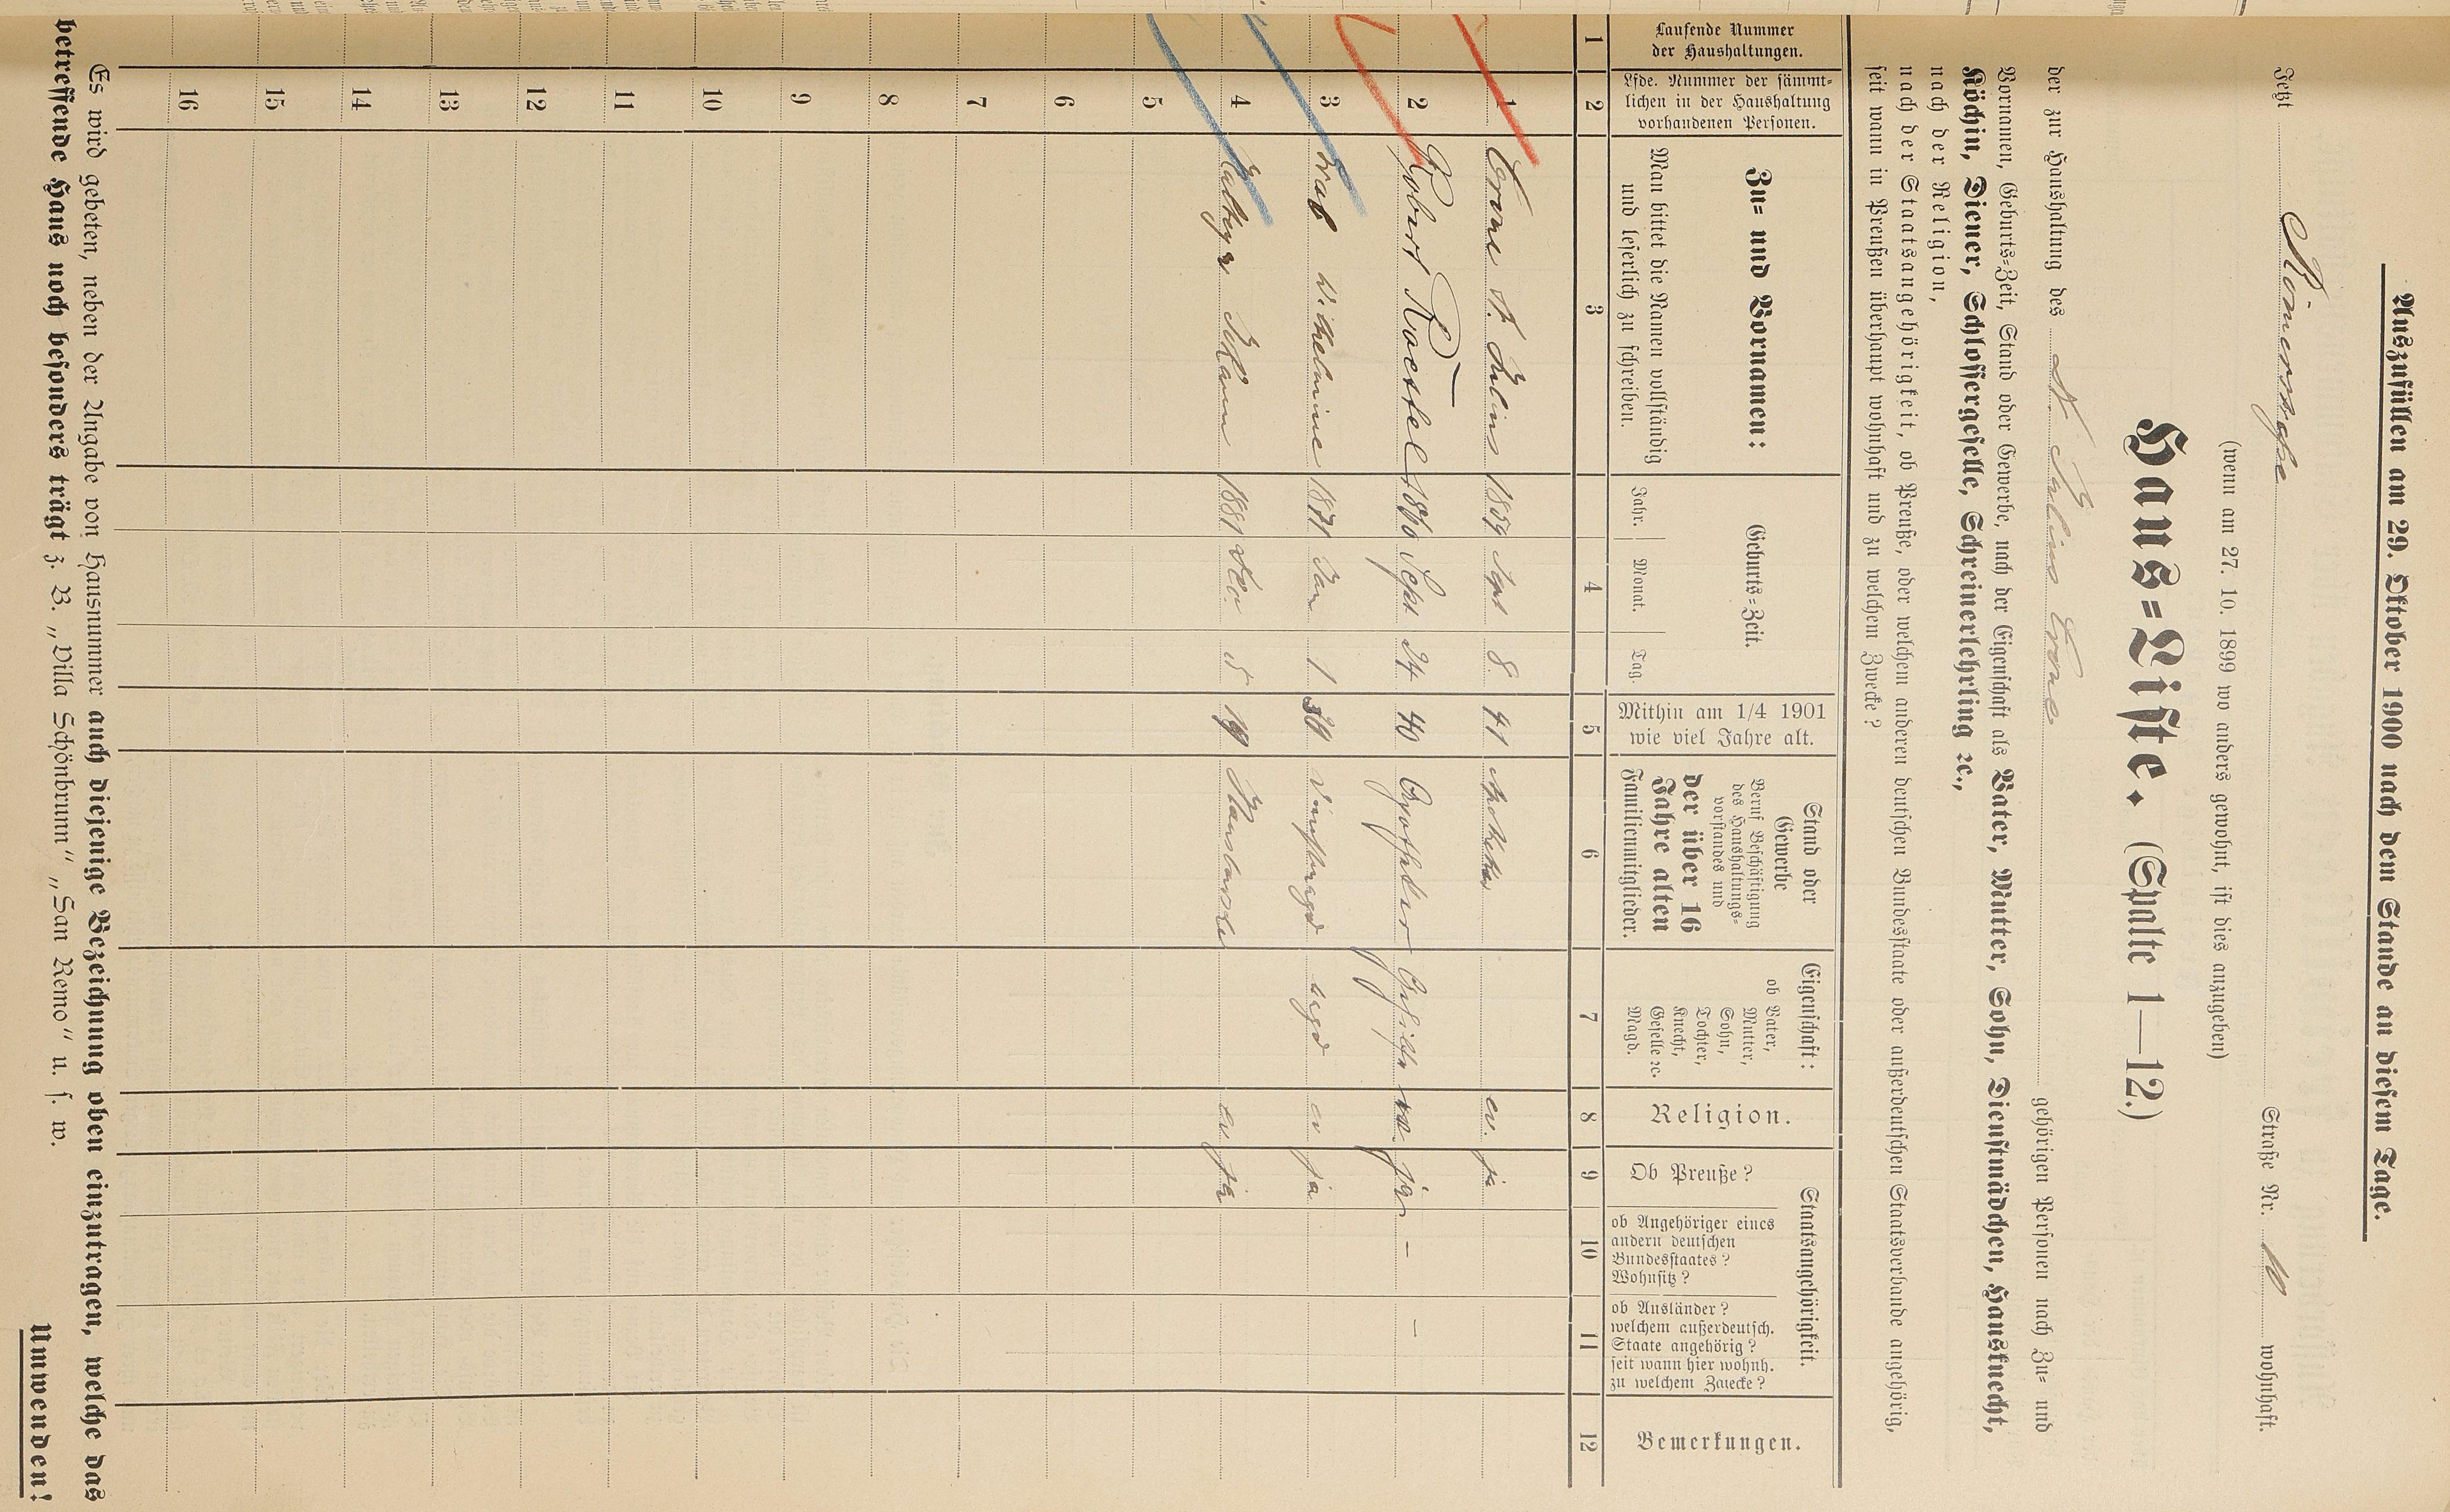 Auszufüllen am 29. Oktober 1900 nach dem Stande an diesem Tage.
Jetzt Römerstraße Straße Nr. 10 wohnhaft.
(wenn am 27. 10. 1899 wo anders gewohnt, ist dies anzugeben)
Haus-Liste. (Spalte 1—12.)
der zur Haushaltung des A. Julius Crone gehörigen Personen nach Zu- und
Vornamen, Geburts-Zeit, Stand oder Gewerbe, nach der Eigenschaft als Vater, Mutter, Sohn, Dienstmädchen, Hausknecht,
Köchin, Diener, Schlossergeselle, Schreinerlehrling ꝛc.,
nach der Religion,
nach der Staatsangehörigkeit, ob Preuße, oder welchem anderen deutschen Bundesstaate oder außerdeutschen Staatsverbande angehörig,
seit wann in Preußen überhaupt wohnhaft und zu welchem Zwecke?
Laufende Nummer
der Haushaltungen.
Lfde. Nummer der sämmt-
lichen in der Haushaltung
vorhandenen Personen.
Zu- und Vornamen:
Man bittet die Namen vollständig
und leserlich zu schreiben.
Geburts-Zeit.
Jahr. Monat. Tag.
Mithin am 1/4 1901
wie viel Jahre alt.
Stand oder
Gewerbe
Beruf Beschäftigung
des Haushaltungs-
vorstandes und
der über 16
Jahre alten
Familienmitglieder.
Eigenschaft:
ob Vater,
Mutter,
Sohn,
Tochter,
Knecht,
Geselle ꝛc.
Magd.
Religion.
Staatsangehörigkeit.
Ob Preuße?
ob Angehöriger eines
andern deutschen
Bundesstaates?
Wohnsitz?
ob Ausländer?
welchem außerdeutsch.
Staate angehörig?
seit wann hier wohnh.
zu welchem Zwecke?
Bemerkungen.
1 2 3 4 5 6 7 8 9 10 11 12
1 Crone A. Julius 1859 Sept 8. 41 Apotheker ev. ja
2 Robert Roestel 1860 Sept 24. 40 Apotheker Gehilfe ev. ja — —
3 Wilhelmine 1871 Jan 1 ev ja
4 Johann 1881 5 19 Hausbursche ev ja
5
6
7
8
9
10
11
12
13
14
15
16
Es wird gebeten, neben der Angabe von Hausnummer auch diejenige Bezeichnung oben einzutragen, welche das
betreffende Haus noch besonders trägt z. B. „Villa Schönbrunn“ „San Remo“ u. s. w.
Umwenden!